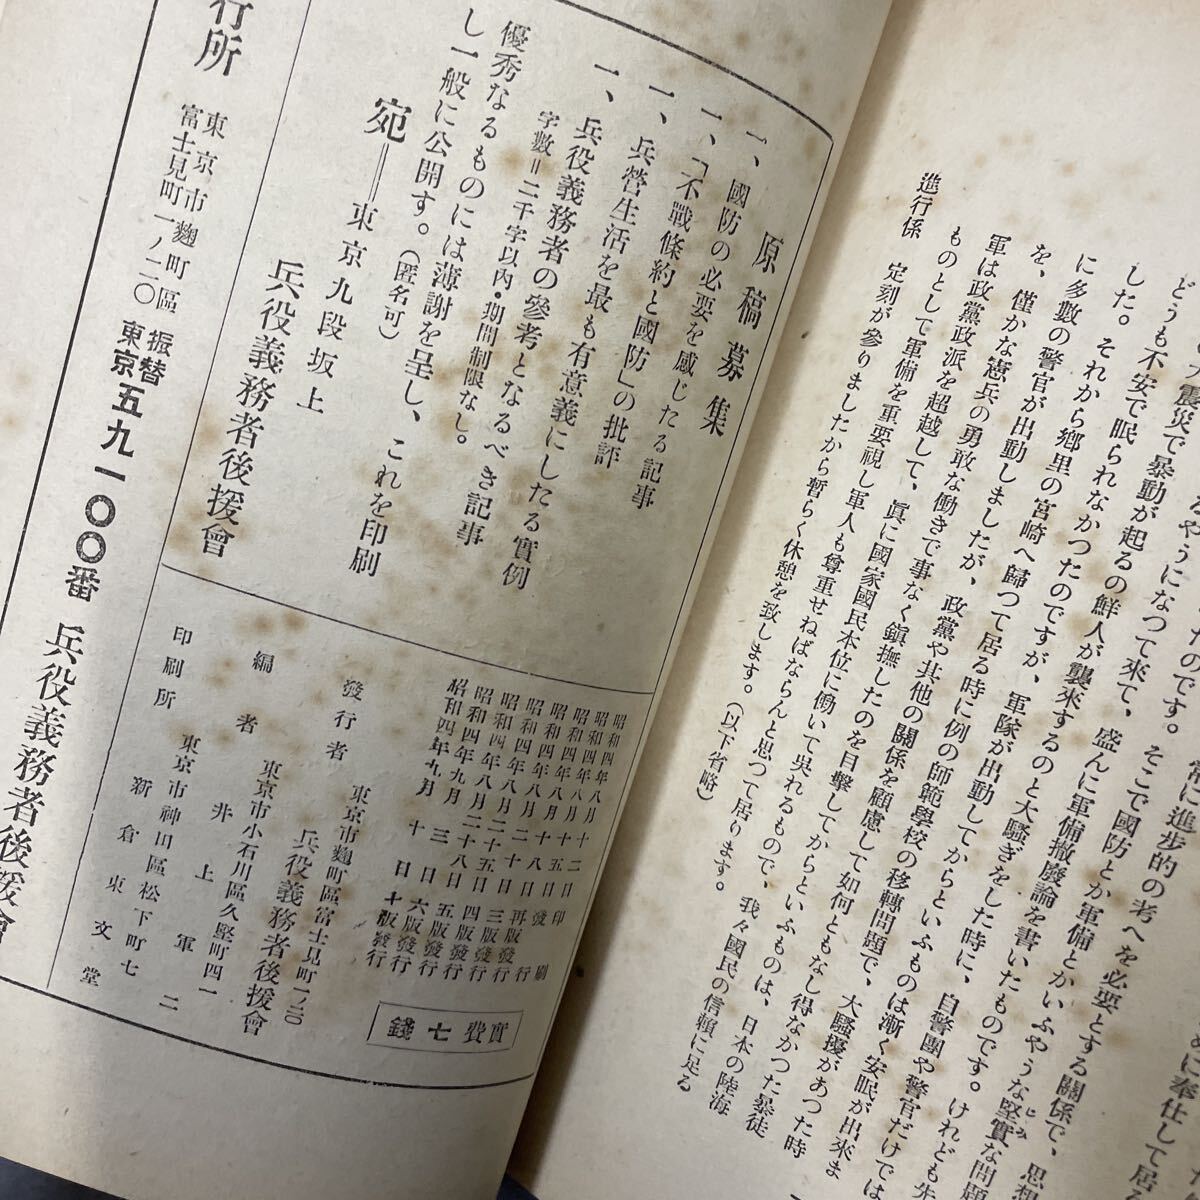 めに奉仕して居
たのです。常に進步的の考へを必要とする關係で、思想
みやうになつて來て、盛んに軍備撤廢論を書いたものです。けれども先
大震災で暴動が起るの鮮人が襲來するのと大騷ぎをした時に、自警團や警官だけでは
どうも不安で眠られなかつたのですが、軍隊が出動してからといふものは漸く安眠が出來ま
した。それから鄕里の宮崎へ歸つて居る時に例の師範學校の移轉問題で、大騷擾があつた時
に多數の警官が出動しましたが、政黨や其他の關係を顧慮して如何ともなし得なかつた暴徒
を、僅かな憲兵の勇敢な働きで事なく鎭撫したのを目擊してからといふものは、日本の陸海
軍は政黨政派を超越して、眞に國家國民本位に働いて吳れるもので、我々國民の信賴に足る
ものとして軍備を重要視し軍人も尊重せねばならんと思つて居ります。（以下省略）
進行係　定刻が參りましたから暫らく休憩を致します。
原稿募集
一、國防の必要を感じたる記事
一、「不戰條約と國防」の批評
一、兵營生活を最も有意義にしたる實例
一、兵役義務者の參考となるべき記事
字數＝二千字以內・期間制限なし。
優秀なるものには薄謝を呈し、これを印刷
し一般に公開す。（匿名可）
宛＝東京九段坂上
兵役義務者後援會
昭和四年八月十二日印刷
昭和四年八月十五日發行
昭和四年八月十八日再版發行
昭和四年八月二十日三版發行
昭和四年八月二十五日四版發行
昭和四年八月二十八日五版發行
昭和四年九月三日六版發行
昭和四年九月十日十版發行
實費七錢
發行者　東京市麴町區富士見町一ノ二〇
兵役義務者後援會
編者　東京市小石川區久堅町四一
井上軍二
印刷所　東京市神田區松下町七
新倉東文堂
行所　東京市麴町區富士見町一ノ二〇　振替東京五九一〇〇番　兵役義務者後援會